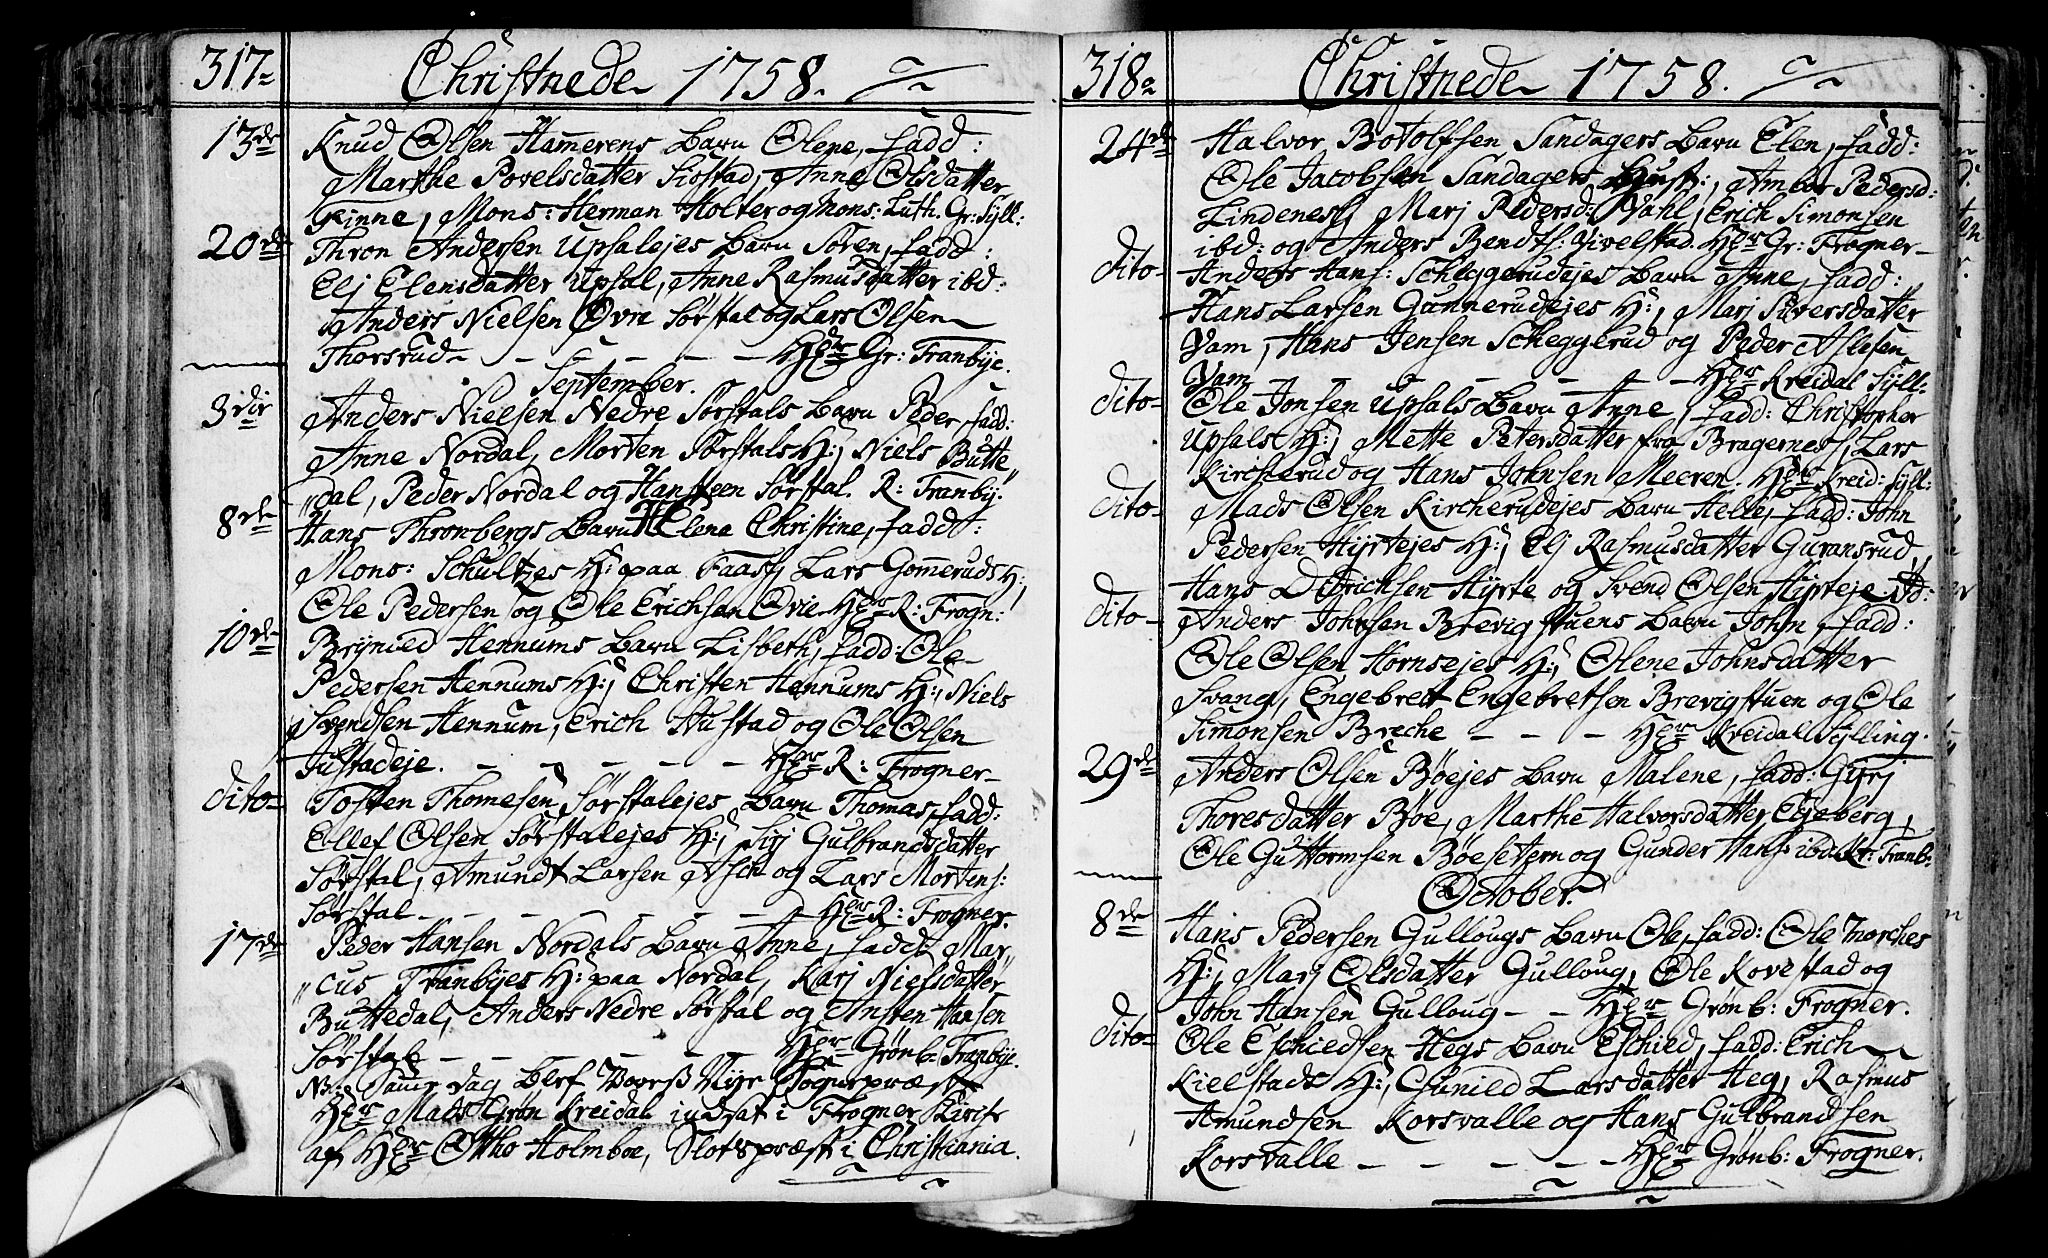 317.
Christnede 1758.
13de Knud Olsen Hamerens Barn Olene, fadd:
Marthe Povelsdatter Siøstad, Anne Olsdatter
Ginne, Mons: Herman Holter og Mons: Luth. Gr: Syll:
20de Thron Andersen Upsalejes Barn Søren, fadd:
Elj Elensdatter Upsal, Anne Rasmusdatter ibd:
Anders Nielsen Øvre Sørstal og Lars Olsen
Thorsrud - - - - - - Hr Gr: Tranbÿe.
September.
3die Anders Nielsen Nedre Sørstals Barn Peder, fadd:
Anne Nordal, Morten Sørstals H:, Niels Butte„
„dal, Peder Nordal og Hans Steen Sørstal. R: Tranbÿ.
8de Hans Thronbergs Barn Helena Christine, fadd:
Mons: Schultzes H: paa Faast, Lars Gomeruds H:,
Ole Pedersen og Ole Erichsen Ovie. Hr R: Frogn:
10de Brÿnild Hennums Barn Lisbeth, fadd: Ole
Pedersen Hennums H:, Christen Hennums H:, Niels
Svendsen Hennum, Erich Justad og Ole Olsen
Justadeje. - - - - - Hr R: Frogner
dito Tosten Thomesen Sørstalejes Barn Thomas, fadd:
Ellef Olsen Sørstalejes H:, Sirj Gulbrandsdatter
Sørstal, Amundt Larsen Asch og Lars Mortens:
Sørstal - - - - - - Hr R: Frogner.
17de Peder Hansen Nordals Barn Anne, fadd: Mar„
„cus Tranbÿes H: paa Nordal, Karj Nielsdatter
Buttedal, Anders Nedre Sørstal og Ansten Hansen
Sørstal - - - - - Hr Grønb: Tranbÿe.
NB: Samme Dag blef Voreß Nÿe Sogneprest
Hr Mads Grøn Kreidal indsat i Frogner Kirke
af Hr Ottho Holmboe, Slotspræst i Christiania.
318.
Christnede 1758.
24de Halvor Botolfsen Sandagers Barn Elen, fadd:
Ole Jacobsen Sandagers Hust:, Ambor Pedersd:
Lindenes, Marj Pedersd: Vahl, Erich Simonsen
ibd: og Anders Bendts: Vivelstad. Hr Gr: Frogner
dito Anders Hans: Scheggerudejes Barn Anne, fadd:
Hans Larsen Gunnerudejes H:, Marj Siversdatter
Vam, Hans Jensen Scheggerud og Peder Aslesen
Vam - - - - - - Hr Kreidal Sÿll:
dito Ole Jonsen Upsals Barn Anne, fadd: Christopher
Upsals H:, Mette Petersdatter fra Bragernes, Lars
Kircherud og Hans Johnsen Meeren. Hr Kreid: Sÿll:
dito Mads Olsen Kircherudejes Barn Helle, fadd: John
Pedersen Hÿrtejes H:, Elj Rasmusdatter Guransrud,
Hans Didrichsen Hÿrte og Svend Olsen Hÿrteje. Id:
dito Anders Johnsen Brevigstuens Barn John, fadd:
Ole Olsen Hornsejes H:, Olene Johnsdatter
Svang, Engebrett Engebretsen Brevigstuen og Ole
Simonsen Breche - - - Hr Kreidal Sÿlling.
29de Anders Olsen Bøejes Barn Malene, fadd: Gurj
Thoresdatter Bøe, Marthe Halvorsdatter Egeberg,
Ole Guttormsen Bøesetern og Gunder Hans: ibd. Kr: Tranb:
October.
8de Hans Pedersen Gullougs Barn Ole, fadd: Ole Morches
H:, Marj Olsdatter Gulloug, Ole Kovestad og
John Hansen Gulloug - - Hr Grønb: Frogner.
dito Ole Eschiedsen Hegs Barn Eschied, fadd: Erich
Kielstads H:, Gunild Larsdatter Heg, Rasmus
Amundsen Korsvalle og Hans Gulbrandsen
Korsvalle - - - - - Hr Grønb: Frogner.